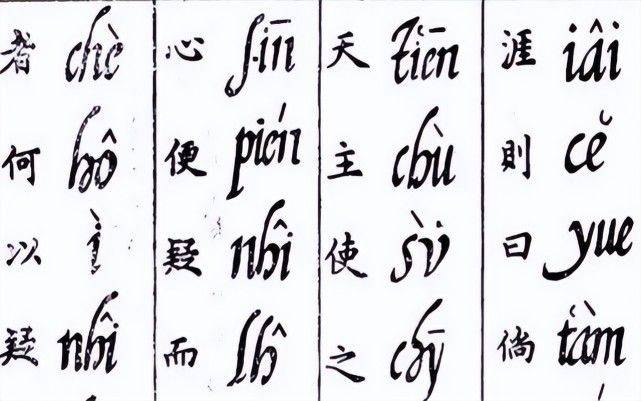 涯 iâi 則 cĕ 曰 yue 倘 t‘àm
天 t‘iēn 主 chù 使 sὺ 之 chȳ
心 sīn 便 pién 疑 nhî 而 lĥ
者 chè 何 hô 以 ì 疑 nhî